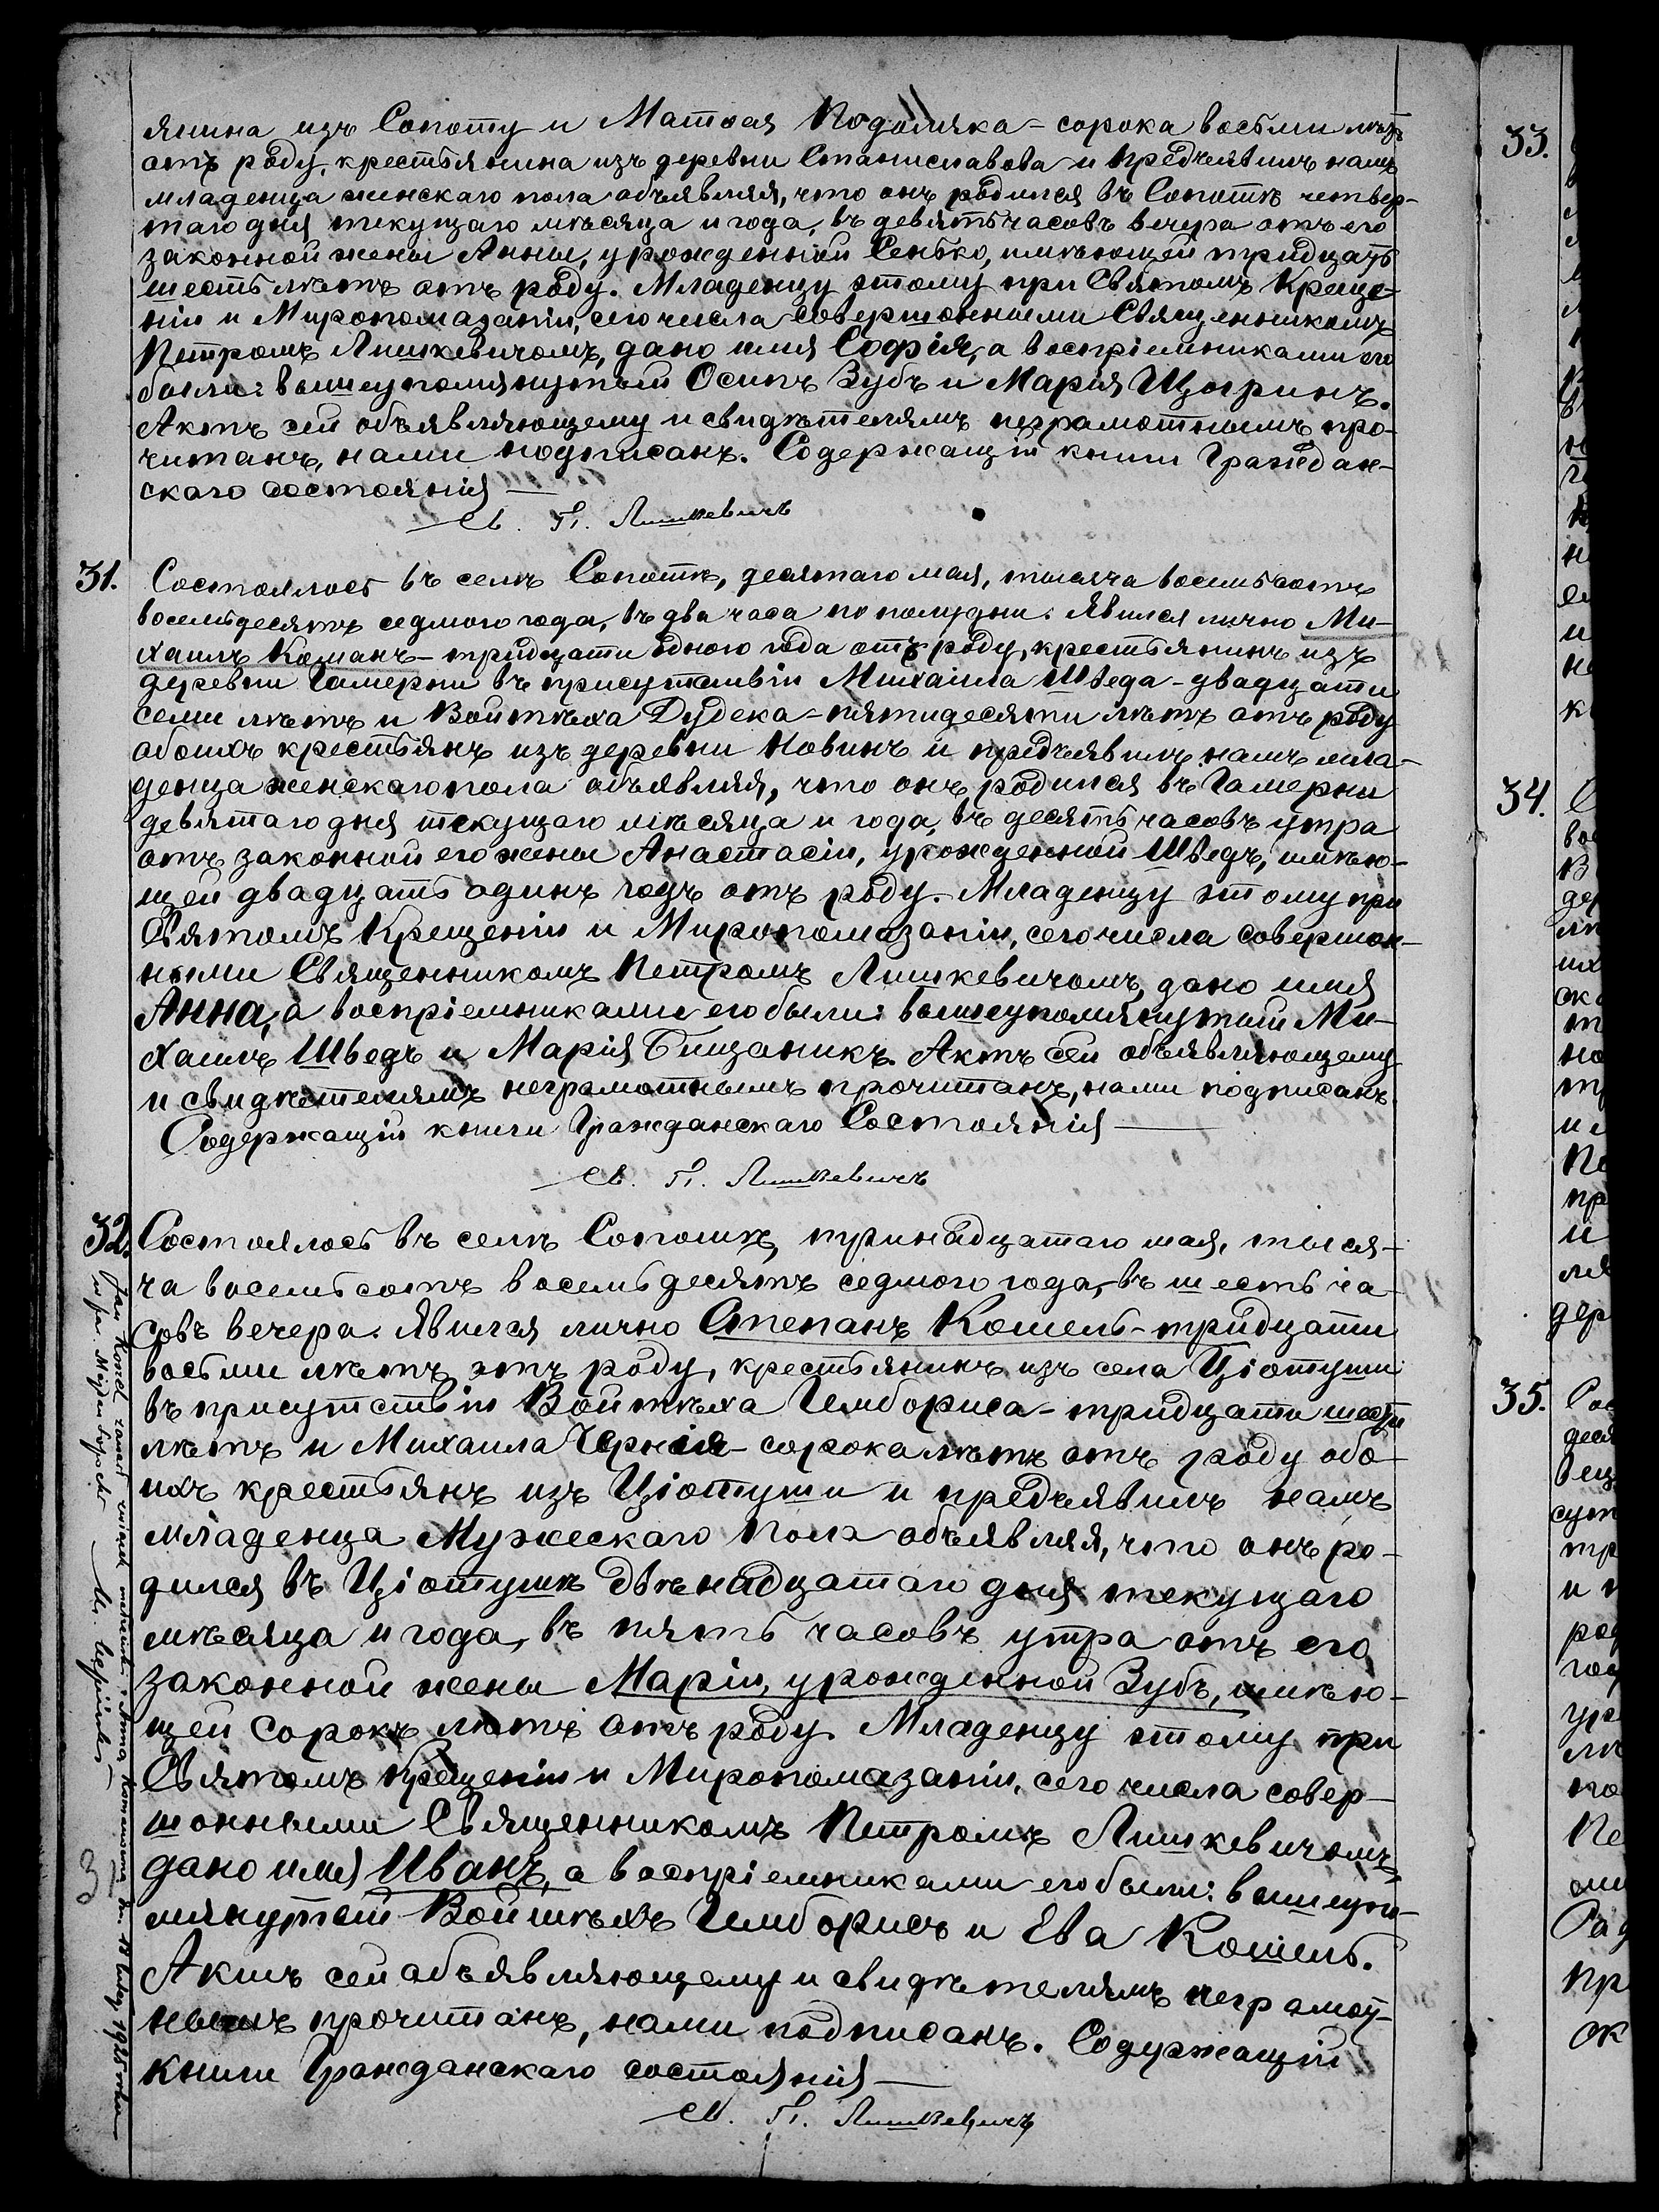 янина изъ Сопоту и Матвея Подоляка - сорока восьми лѣтъ
отъ роду, крестьянина изъ деревни Станиславова и предъявилъ намъ
младенца женскаго пола объявляя, что онъ родился въ Сопотѣ четвер-
таго дня текущаго мѣсяца и года, въ девять часовъ вечера отъ его
законной жены Анны, урожденной Сенько, имѣющей тридцать
шесть лѣтъ отъ роду. Младенцу этому при Святомъ Креще-
ніи и Миропомазаніи, сего числа совершонными Священникомъ
Петромъ Лишкевичомъ, дано имя Софія, а воспріемниками его
были: вышеупомянутый Осипъ Зубъ и Марія
Актъ сей объявляющему и свидѣтелямъ неграмотнымъ про-
читанъ, нами подписанъ. Содержащій книги Граждан-
скаго состоянія —
Св. П. Лишкевичъ
31. Состоялось въ селѣ Сопотѣ, десятаго мая, тысяча восемьсотъ
восемьдесятъ седмого года, въ два часа по полудни. Явился лично Ми-
хаилъ Команъ - тридцати одного года отъ роду, крестьянинъ изъ
деревни Гамерни въ присутствіи Михаила Шведа - двадцати
семи лѣтъ и Войтѣха Дудека - пятидесяти лѣтъ отъ роду
обоихъ крестьянъ изъ деревни Новинъ и предъявилъ намъ мла-
денца женскаго пола объявляя, что онъ родился въ Гамерни
девятаго дня текущаго мѣсяца и года, въ десять часовъ утра
отъ законной его жены Анастасіи, урожденной Шведъ, имѣю-
щей двадцать одинъ годъ отъ роду. Младенцу этому при
Святомъ Крещеніи и Миропомазаніи, сего числа совершон-
ными Священникомъ Петромъ Лишкевичомъ, дано имя
Анна, а воспріемниками его были: вышеупомянутый Ми-
хаилъ Шведъ и Марія Бищаникъ. Актъ сей объявляющему
и свидѣтелямъ неграмотнымъ прочитанъ, нами подписанъ.
Содержащій книги Гражданскаго Состоянія —
Св. П. Лишкевичъ
32. Состоялось въ селѣ Сопотѣ, тринадцатаго мая, тыся-
ча восемьсотъ восемьдесятъ седмого года, въ шесть ча-
совъ вечера. Явился лично Степанъ Кошель - тридцати
восьми лѣтъ отъ роду, крестьянинъ изъ села Ціотуши
въ присутствіи Войтѣха Гембориса - тридцати шести
лѣтъ и Михаила Чернія - сорока лѣтъ отъ роду обо-
ихъ крестьянъ изъ Ціотуши и предъявилъ намъ
младенца Мужескаго пола объявляя, что онъ ро-
дился въ Ціотушѣ двѣнадцатаго дня текущаго
мѣсяца и года, въ пять часовъ утра отъ его
законной жены Маріи, урожденной Зубъ, имѣю-
щей сорокъ лѣтъ отъ роду. Младенцу этому при
Святомъ Крещеніи и Миропомазаніи, сего числа совер-
шонными Священникомъ Петромъ Лишкевичомъ,
дано имя Иванъ, а воспріемниками его были: вышеупо-
мянутый Войтѣхъ Гемборисъ и Ева Кошель.
Актъ сей объявляющему и свидѣтелямъ неграмот-
нымъ прочитанъ, нами подписанъ. Содержащій
книги Гражданскаго состоянія —
Св. П. Лишкевичъ
Jan Koszel zawarł związek małżeński z Anną 1925 roku
33.
34.
35.